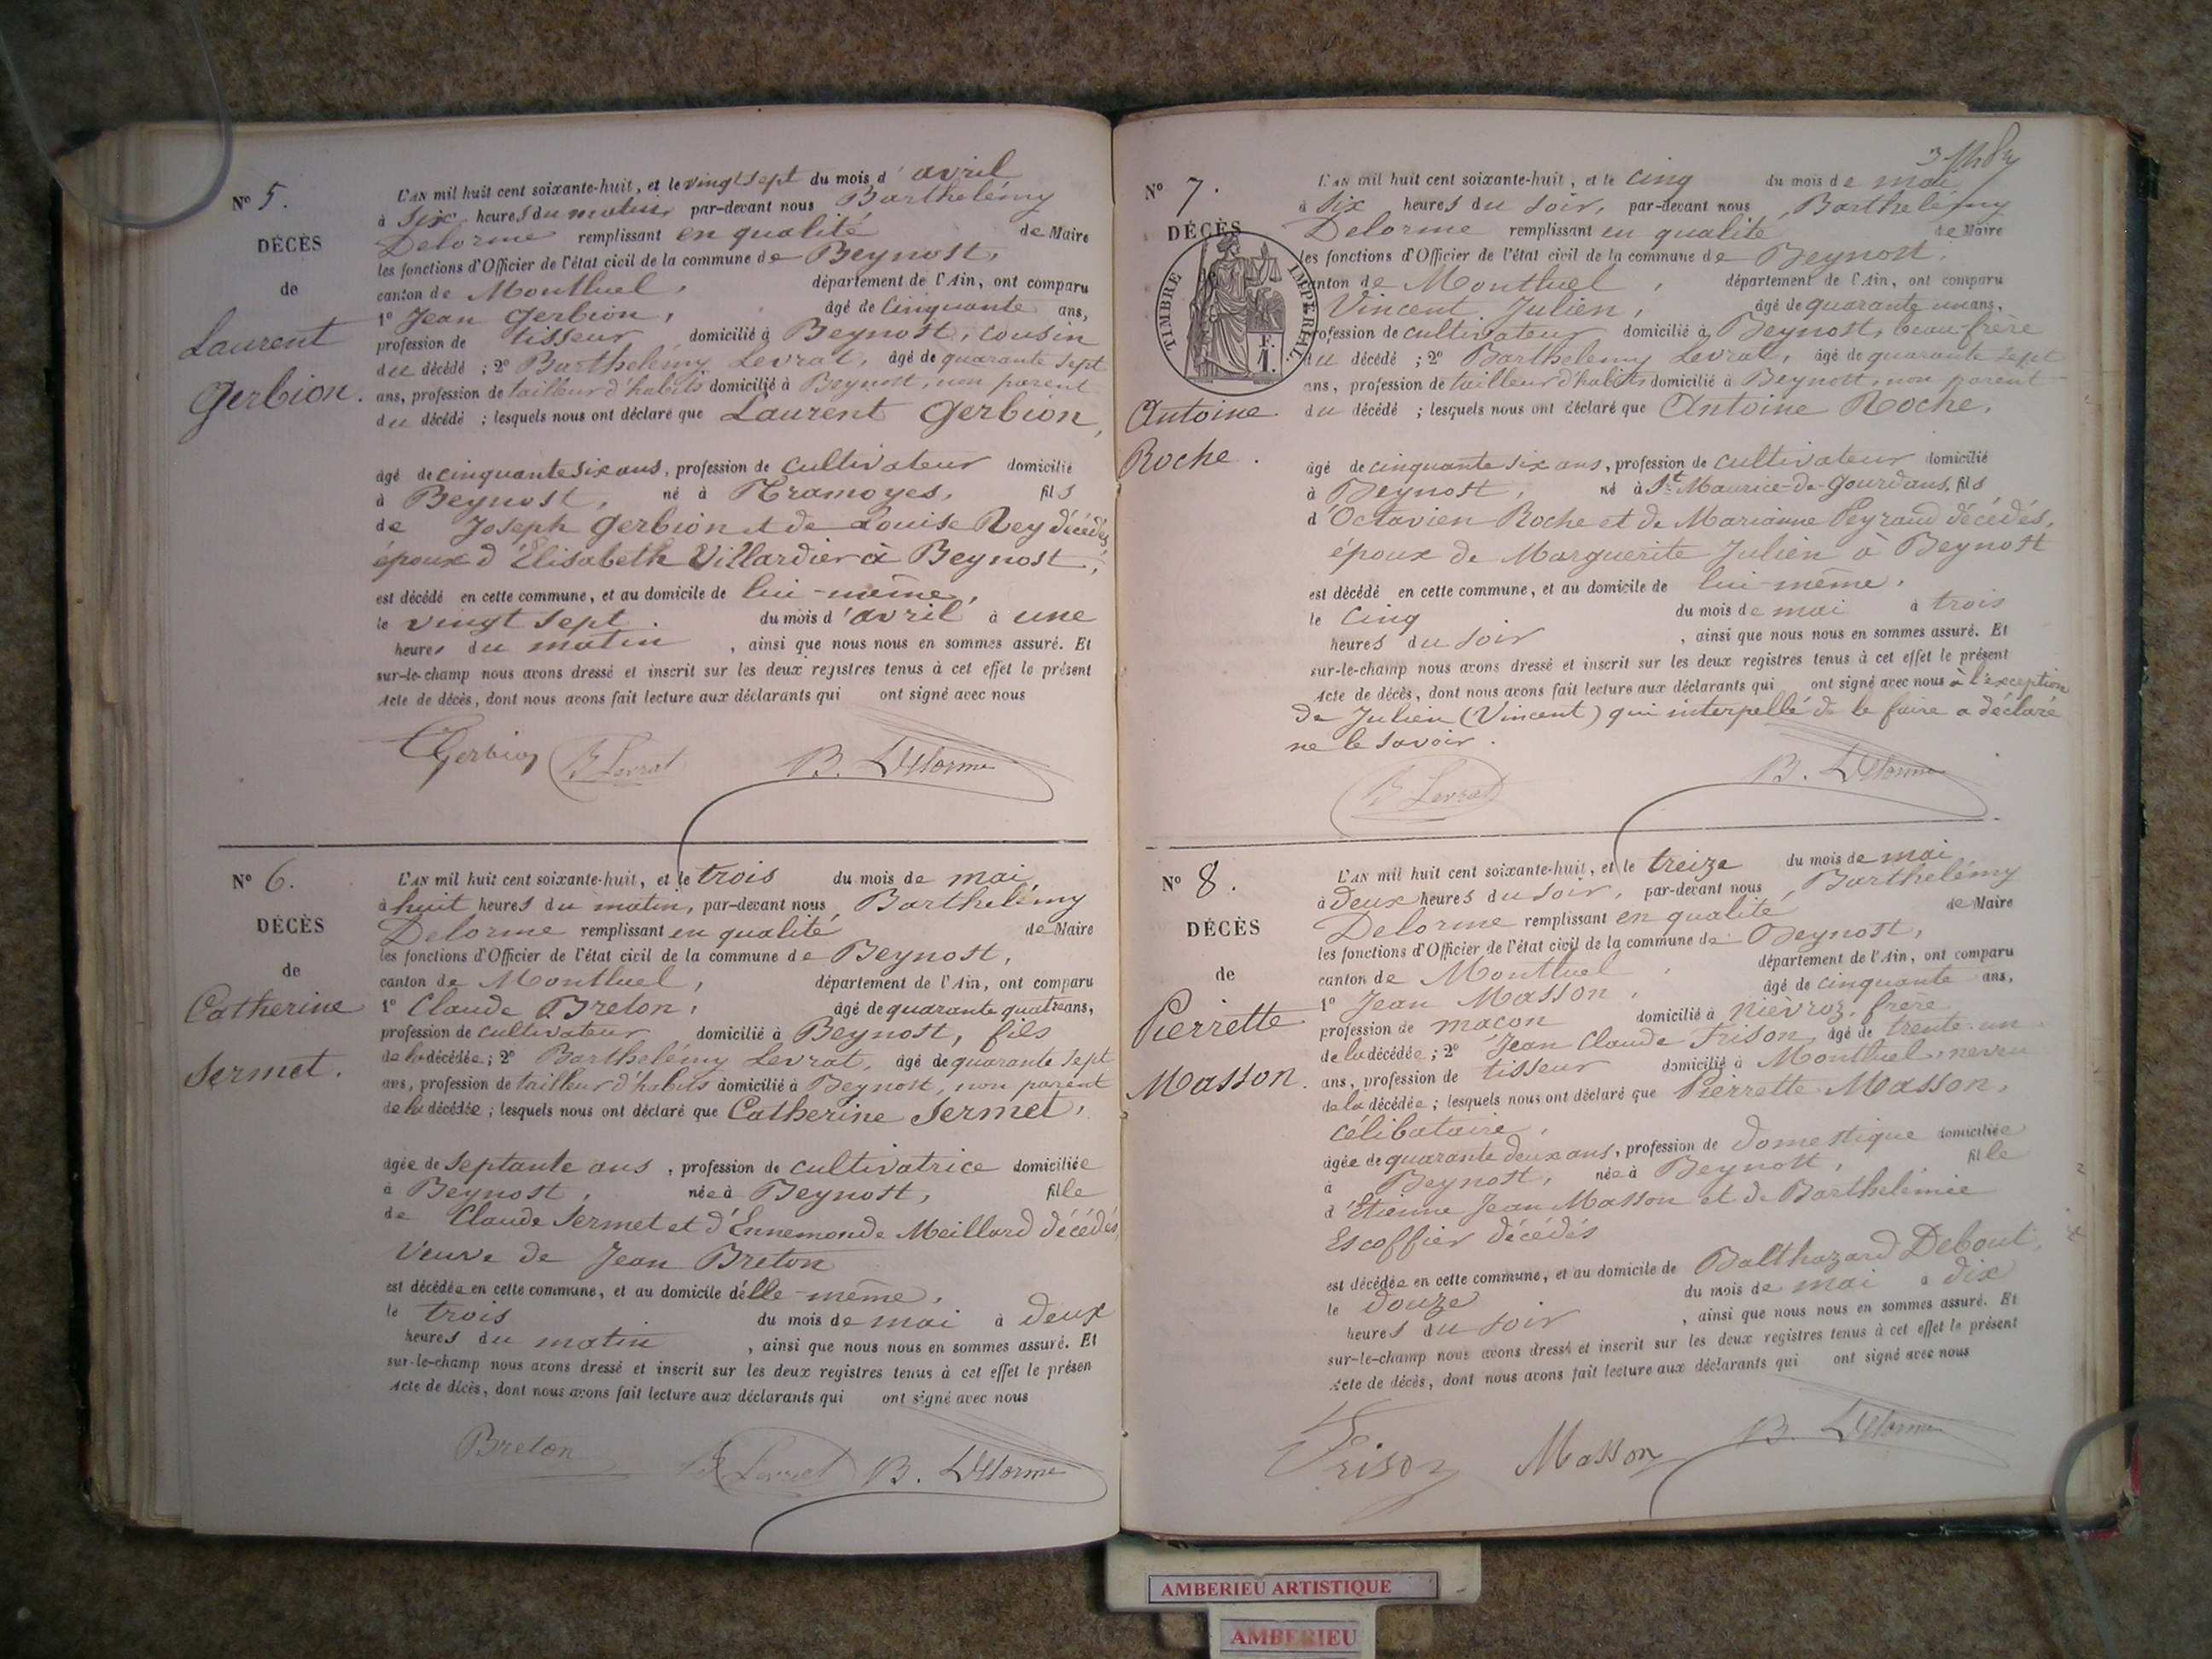 N° 5.
DÉCÈS
de
Laurent
Gerbion.
L'AN mil huit cent soixante-huit, et le vingt sept du mois d'avril
à six heures du matin, par-devant nous Barthelémy
Delorme remplissant en qualité de Maire
les fonctions d'Officier de l'état civil de la commune de Beynost,
canton de Montluel, département de l'Ain, ont comparu
1° Jean Gerbion, âgé de cinquante ans,
profession de tisseur domicilié à Beynost, cousin
du décédé ; 2° Barthelemy Levrat, âgé de quarante sept
ans, profession de tailleur d'habits domicilié à Beynost, non parent
du décédé ; lesquels nous ont déclaré que Laurent Gerbion,
âgé de cinquante six ans, profession de cultivateur domicilié
à Beynost, né à Tramoyes, fils
de Joseph Gerbion et de Louise Rey décédés,
époux d'Elisabeth Villardier à Beynost,
est décédé en cette commune, et au domicile de lui-même,
le vingt sept du mois d'avril à une
heures du matin, ainsi que nous nous en sommes assuré. Et
sur-le-champ nous avons dressé et inscrit sur les deux registres tenus à cet effet le présent
Acte de décès, dont nous avons fait lecture aux déclarants qui ont signé avec nous
Gerbion B Levrat B. Delorme
N° 6.
DÉCÈS
de
Catherine
Sermet.
L'AN mil huit cent soixante-huit, et le trois du mois de mai
à huit heures du matin, par-devant nous Barthelémy
Delorme remplissant en qualité de Maire
les fonctions d'Officier de l'état civil de la commune de Beynost,
canton de Montluel, département de l'Ain, ont comparu
1° Claude Breton, âgé de quarante quatre ans,
profession de cultivateur domicilié à Beynost, fils
de la décédée ; 2° Barthelémy Levrat, âgé de quarante sept
ans, profession de tailleur d'habits domicilié à Beynost, non parent
de la décédée ; lesquels nous ont déclaré que Catherine Sermet,
âgée de septante ans, profession de cultivatrice domiciliée
à Beynost, née à Beynost, fille
de Claude Sermet et d'Ennemonde Meillard décédés
Veuve de Jean Breton
est décédée en cette commune, et au domicile d'elle-même,
le trois du mois de mai à deux
heures du matin, ainsi que nous nous en sommes assuré. Et
sur-le-champ nous avons dressé et inscrit sur les deux registres tenus à cet effet le présen
Acte de décès, dont nous avons fait lecture aux déclarants qui ont signé avec nous
Breton B Levrat B. Delorme
N° 7.
DÉCÈS
de
TIMBRE IMPÉRIAL
F. 1.
Antoine
Roche.
L'AN mil huit cent soixante-huit, et le cinq du mois de mai
à six heures du soir, par-devant nous Barthelémy
Delorme remplissant en qualité de Maire
les fonctions d'Officier de l'état civil de la commune de Beynost,
canton de Montluel, département de l'Ain, ont comparu
Vincent Julien, âgé de quarante un ans,
profession de cultivateur domicilié à Beynost, beau-frère
du décédé ; 2° Barthelemy Levrat, âgé de quarante sept
ans, profession de tailleur d'habits domicilié à Beynost, non parent
du décédé ; lesquels nous ont déclaré que Antoine Roche,
âgé de cinquante six ans, profession de cultivateur domicilié
à Beynost, né à St Maurice-de-Gourdans, fils
d'Octavien Roche et de Marianne Peyraud décédés,
époux de Marguerite Julien à Beynost
est décédé en cette commune, et au domicile de lui-même,
le cinq du mois de mai à trois
heures du soir, ainsi que nous nous en sommes assuré. Et
sur-le-champ nous avons dressé et inscrit sur les deux registres tenus à cet effet le présent
Acte de décès, dont nous avons fait lecture aux déclarants qui ont signé avec nous à l'exception
de Julien (Vincent) qui interpellé de le faire a déclaré
ne le savoir.
B Levrat B. Delorme
N° 8.
DÉCÈS
de
Pierrette
Masson.
L'AN mil huit cent soixante-huit, et le treize du mois de mai
à deux heures du soir, par-devant nous Barthelémy
Delorme remplissant en qualité de Maire
les fonctions d'Officier de l'état civil de la commune de Beynost,
canton de Montluel, département de l'Ain, ont comparu
1° Jean Masson, âgé de cinquante ans,
profession de maçon domicilié à Nièvroz, frère
de la décédée ; 2° Jean Claude Frison, âgé de trente un
ans, profession de tisseur domicilié à Montluel, neveu
de la décédée ; lesquels nous ont déclaré que Pierrette Masson,
célibataire,
âgée de quarante deux ans, profession de domestique domiciliée
à Beynost, née à Beynost, fille
d'Etienne Jean Masson et de Barthélemie
Escoffier décédés
est décédée en cette commune, et au domicile de Balthazard Debout,
le douze du mois de mai à dix
heures du soir, ainsi que nous nous en sommes assuré. Et
sur-le-champ nous avons dressé et inscrit sur les deux registres tenus à cet effet le présent
Acte de décès, dont nous avons fait lecture aux déclarants qui ont signé avec nous
Frison Masson B. Delorme
AMBERIEU ARTISTIQUE
AMBERIEU